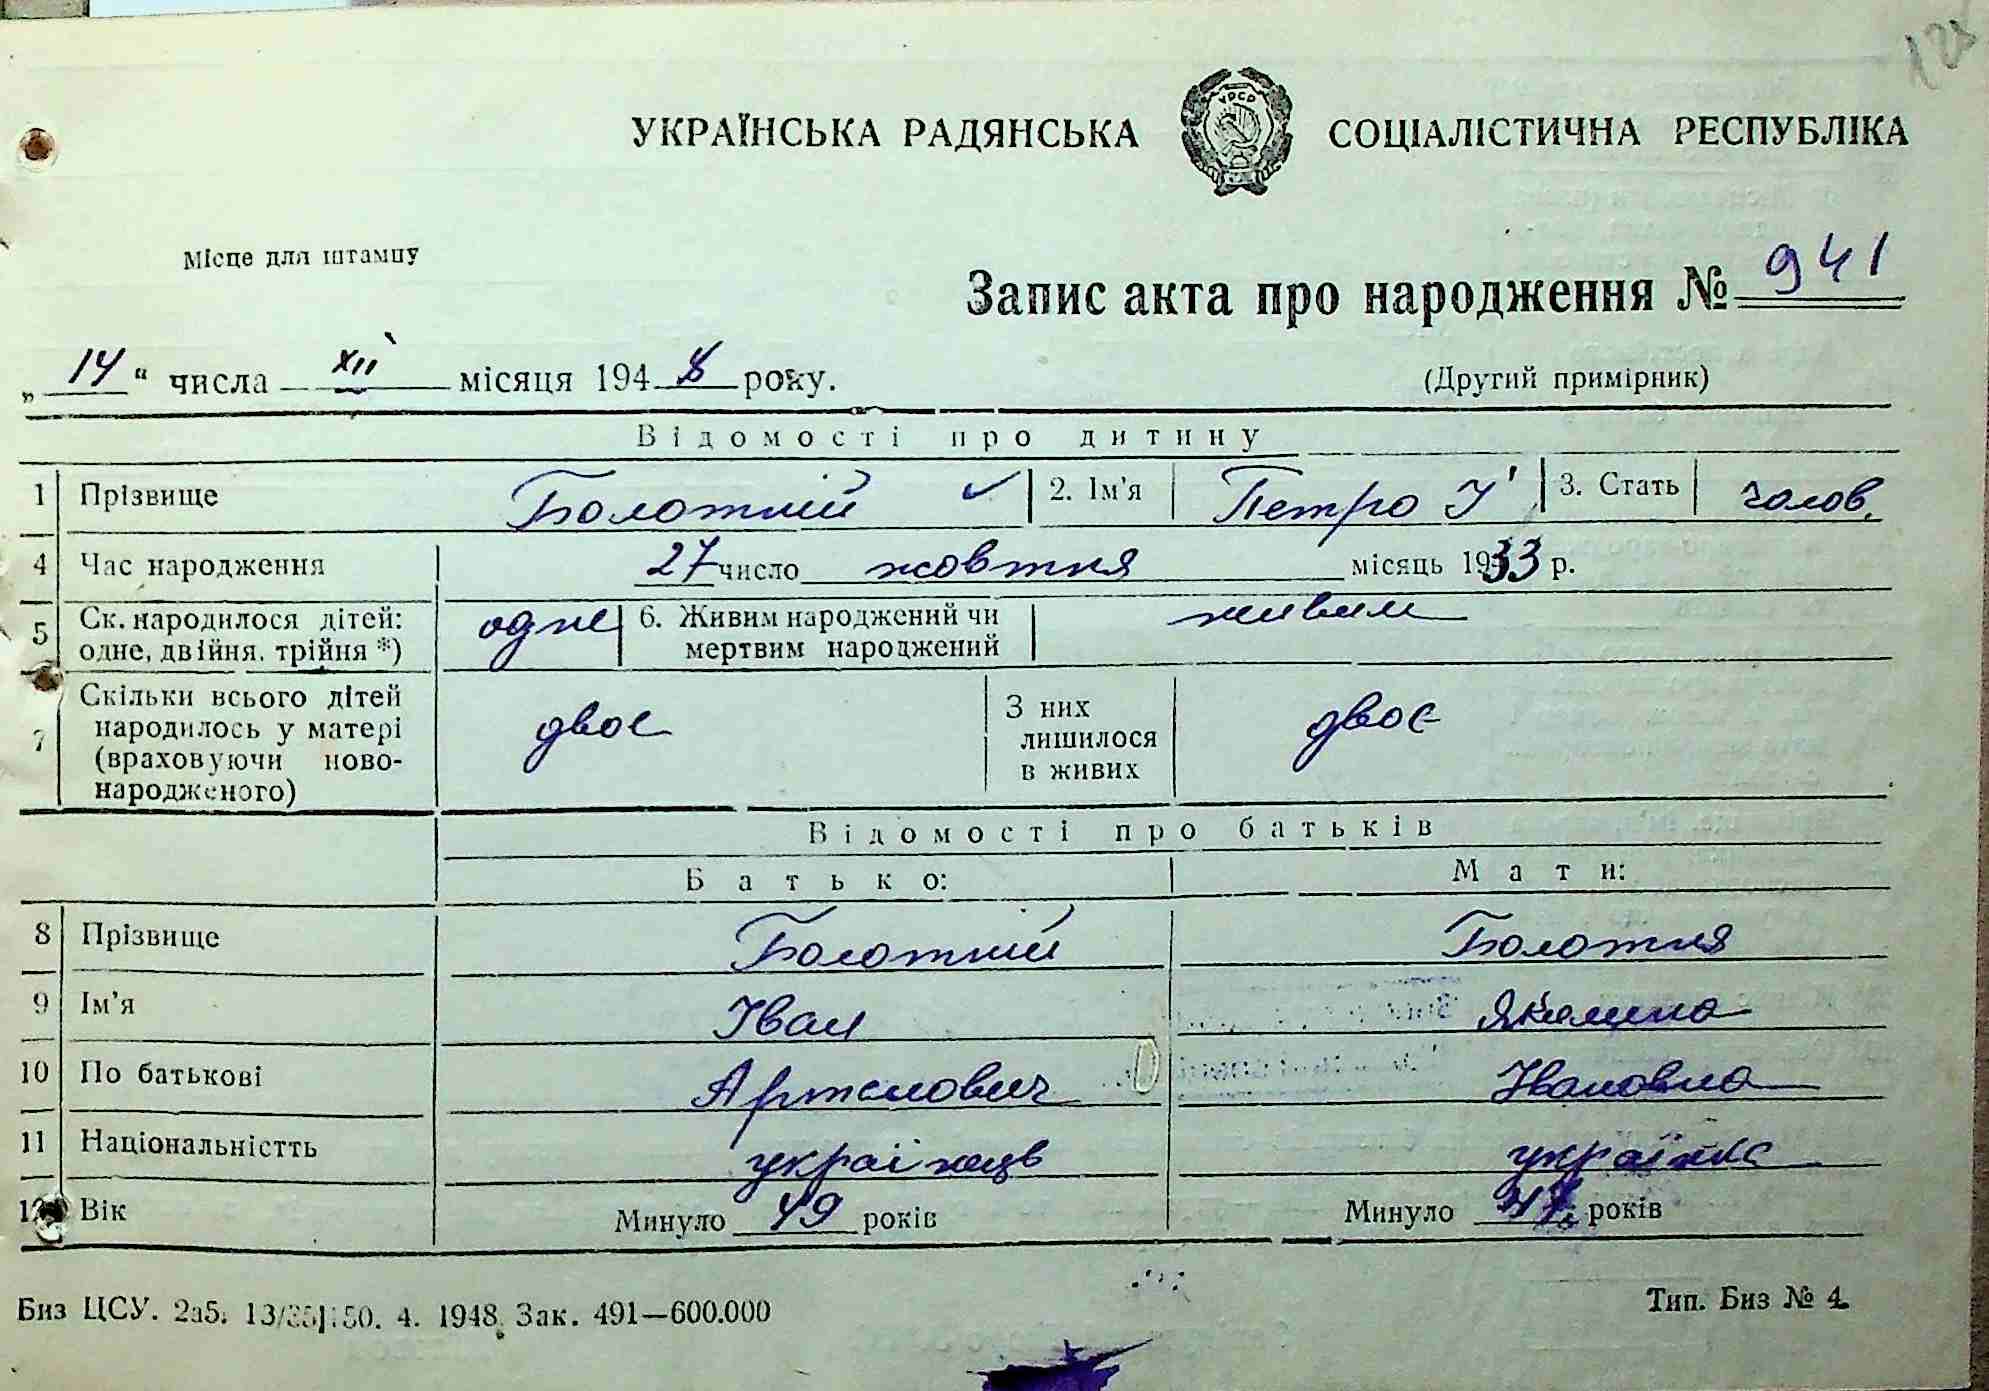 УКРАЇНСЬКА РАДЯНСЬКА СОЦІАЛІСТИЧНА РЕСПУБЛІКА
УРСР
Місце для штампу
Запис акта про народження № 941
„14“ числа XII місяця 1948 року.
(Другий примірник)
Відомості про дитину
1 Прізвище Болотній ✓ 2. Ім'я Петро І 3. Стать чолов.
4 Час народження 27 число жовтня місяць 1933 р.
5 Ск. народилося дітей: одне, двійня, трійня *) одне 6. Живим народжений чи мертвим народжений живим
7 Скільки всього дітей народилось у матері (враховуючи новонародженого) двоє З них лишилося в живих двоє
Відомості про батьків
Батько: Мати:
8 Прізвище Болотній Болотня
9 Ім'я Іван Якилина
10 По батькові Артемович Івановна
11 Національністть українець українка
12 Вік Минуло 49 років Минуло років
Биз ЦСУ. 2а5. 50. 4. 1948. Зак. 491—600.000
Тип. Биз № 4.